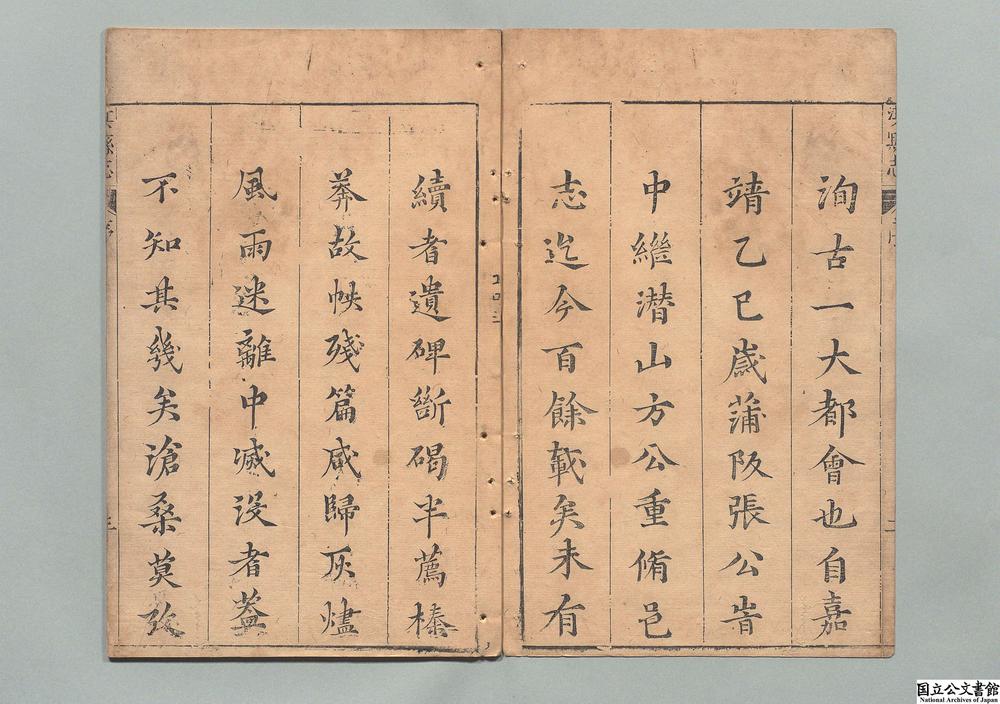 洵古一大都會也自嘉
靖乙巳歲蒲阪張公旹
中繼潛山方公重脩邑
志迄今百餘載矣未有
續者遺碑斷碣半薦榛
莽故帙殘篇咸歸灰燼
風雨迷離中滅沒者葢
不知其幾矣滄桑莫攷
縣志
序
三
国立公文書館
National Archives of Japan